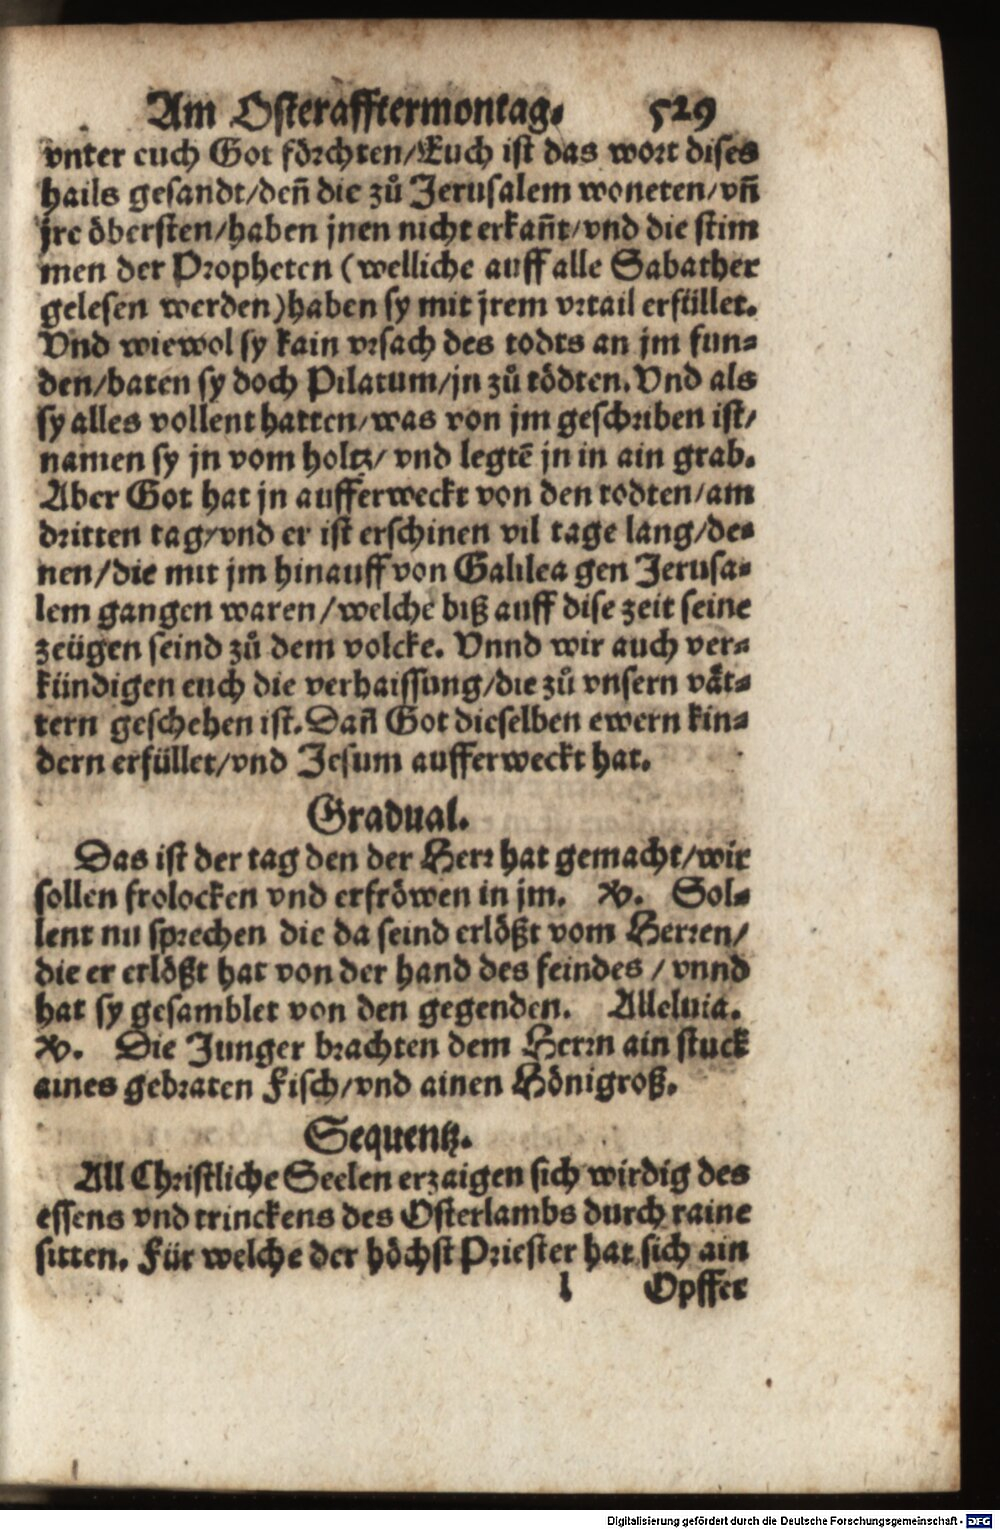 Am Osterafftermontag. 529
vnter euch Got förchten/Euch ist das wort dises
hails gesandt/deñ die zů Jerusalem woneten/vñ
jre öbersten/haben jnen nicht erkañt/vnd die stim
men der Propheten (welliche auff alle Sabather
gelesen werden) haben sy mit jrem vrtail erfüllet.
Vnd wiewol sy kain vrsach des todts an jm fun-
den/baten sy doch Pilatum/jn zů tödten. Vnd als
sy alles vollent hatten/was von jm geschriben ist/
namen sy jn vom holtz/ vnd legtē jn in ain grab.
Aber Got hat jn aufferweckt von den todten/am
dritten tag/vnd er ist erschinen vil tage lang/de-
nen/die mit jm hinauff von Galilea gen Jerusa-
lem gangen waren/welche biß auff dise zeit seine
zeügen seind zů dem volcke. Vnnd wir auch ver-
kündigen euch die verhaissung/die zů vnsern vät-
tern geschehen ist. Dañ Got dieselben ewern kin-
dern erfüllet/vnd Jesum aufferweckt hat.
Gradual.
Das ist der tag den der Herr hat gemacht/wir
sollen frolocken vnd erfröwen in jm. ℣. Sol-
lent nu sprechen die da seind erlößt vom Herren/
die er erlößt hat von der hand des feindes / vnnd
hat sy gesamblet von den gegenden. Alleluia.
℣. Die Junger brachten dem Herrn ain stuck
aines gebraten Fisch/vnd ainen Hönigroß.
Sequentz.
All Christliche Seelen erzaigen sich wirdig des
essens vnd trinckens des Osterlambs durch raine
sitten. Für welche der höchst Priester hat sich ain
l Opffer
Digitalisierung gefördert durch die Deutsche Forschungsgemeinschaft - DFG